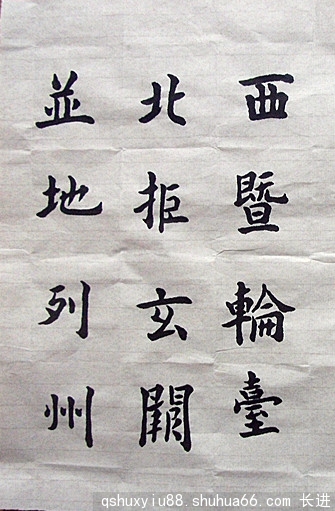 西暨輪臺
北拒玄闕
並地列州
qshuxyiu88.shuhua66.com 长进